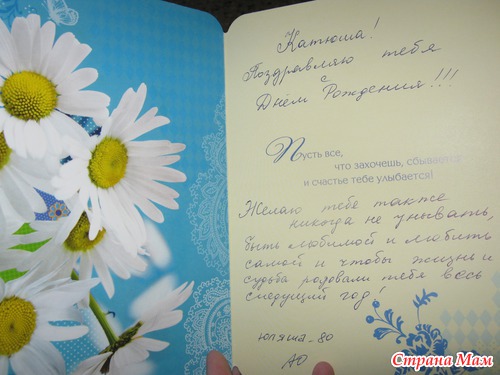 Катюша!
Поздравляю тебя
с
Днём Рождения!!!
Пусть все,
что захочешь, сбывается
и счастье тебе улыбается!
Желаю тебе также
никогда не унывать,
быть любимой и любить
самой и чтобы жизнь и
судьба радовали тебя весь
следущий год!
юляша_80
АЮ
Страна Мам